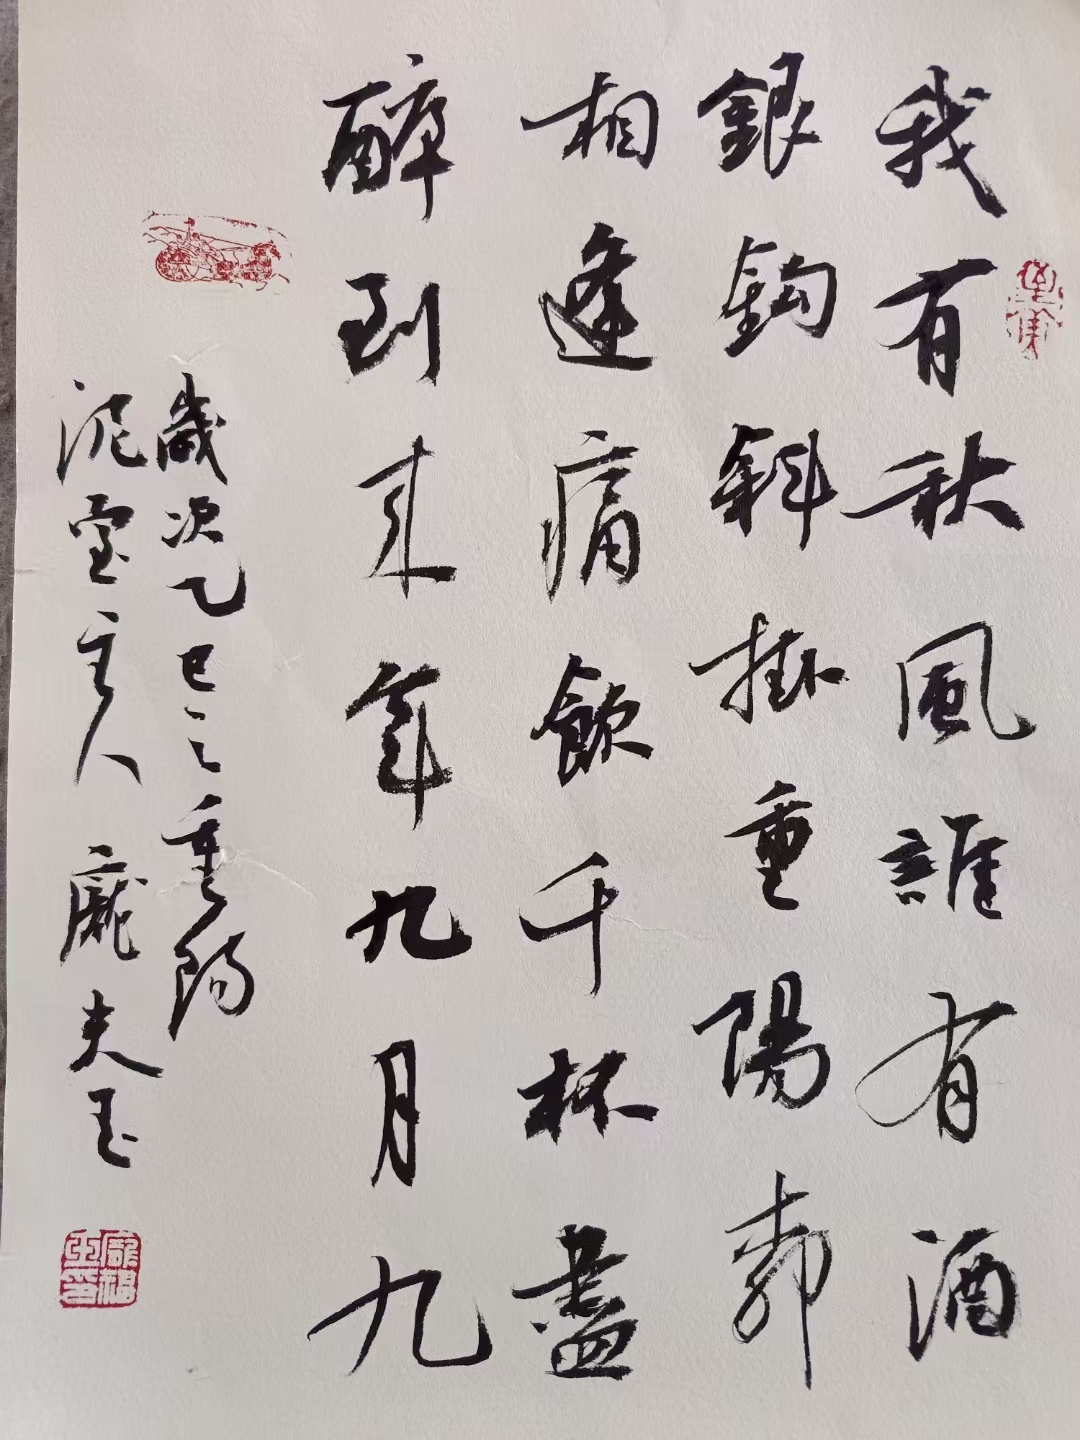 我有秋風誰有酒
銀鈎斜掛重陽郭
相逢痛飲千杯盡
醉到来年九月九
歲次乙巳之重陽
泥堂主人 龐夫玉
龐福玉印